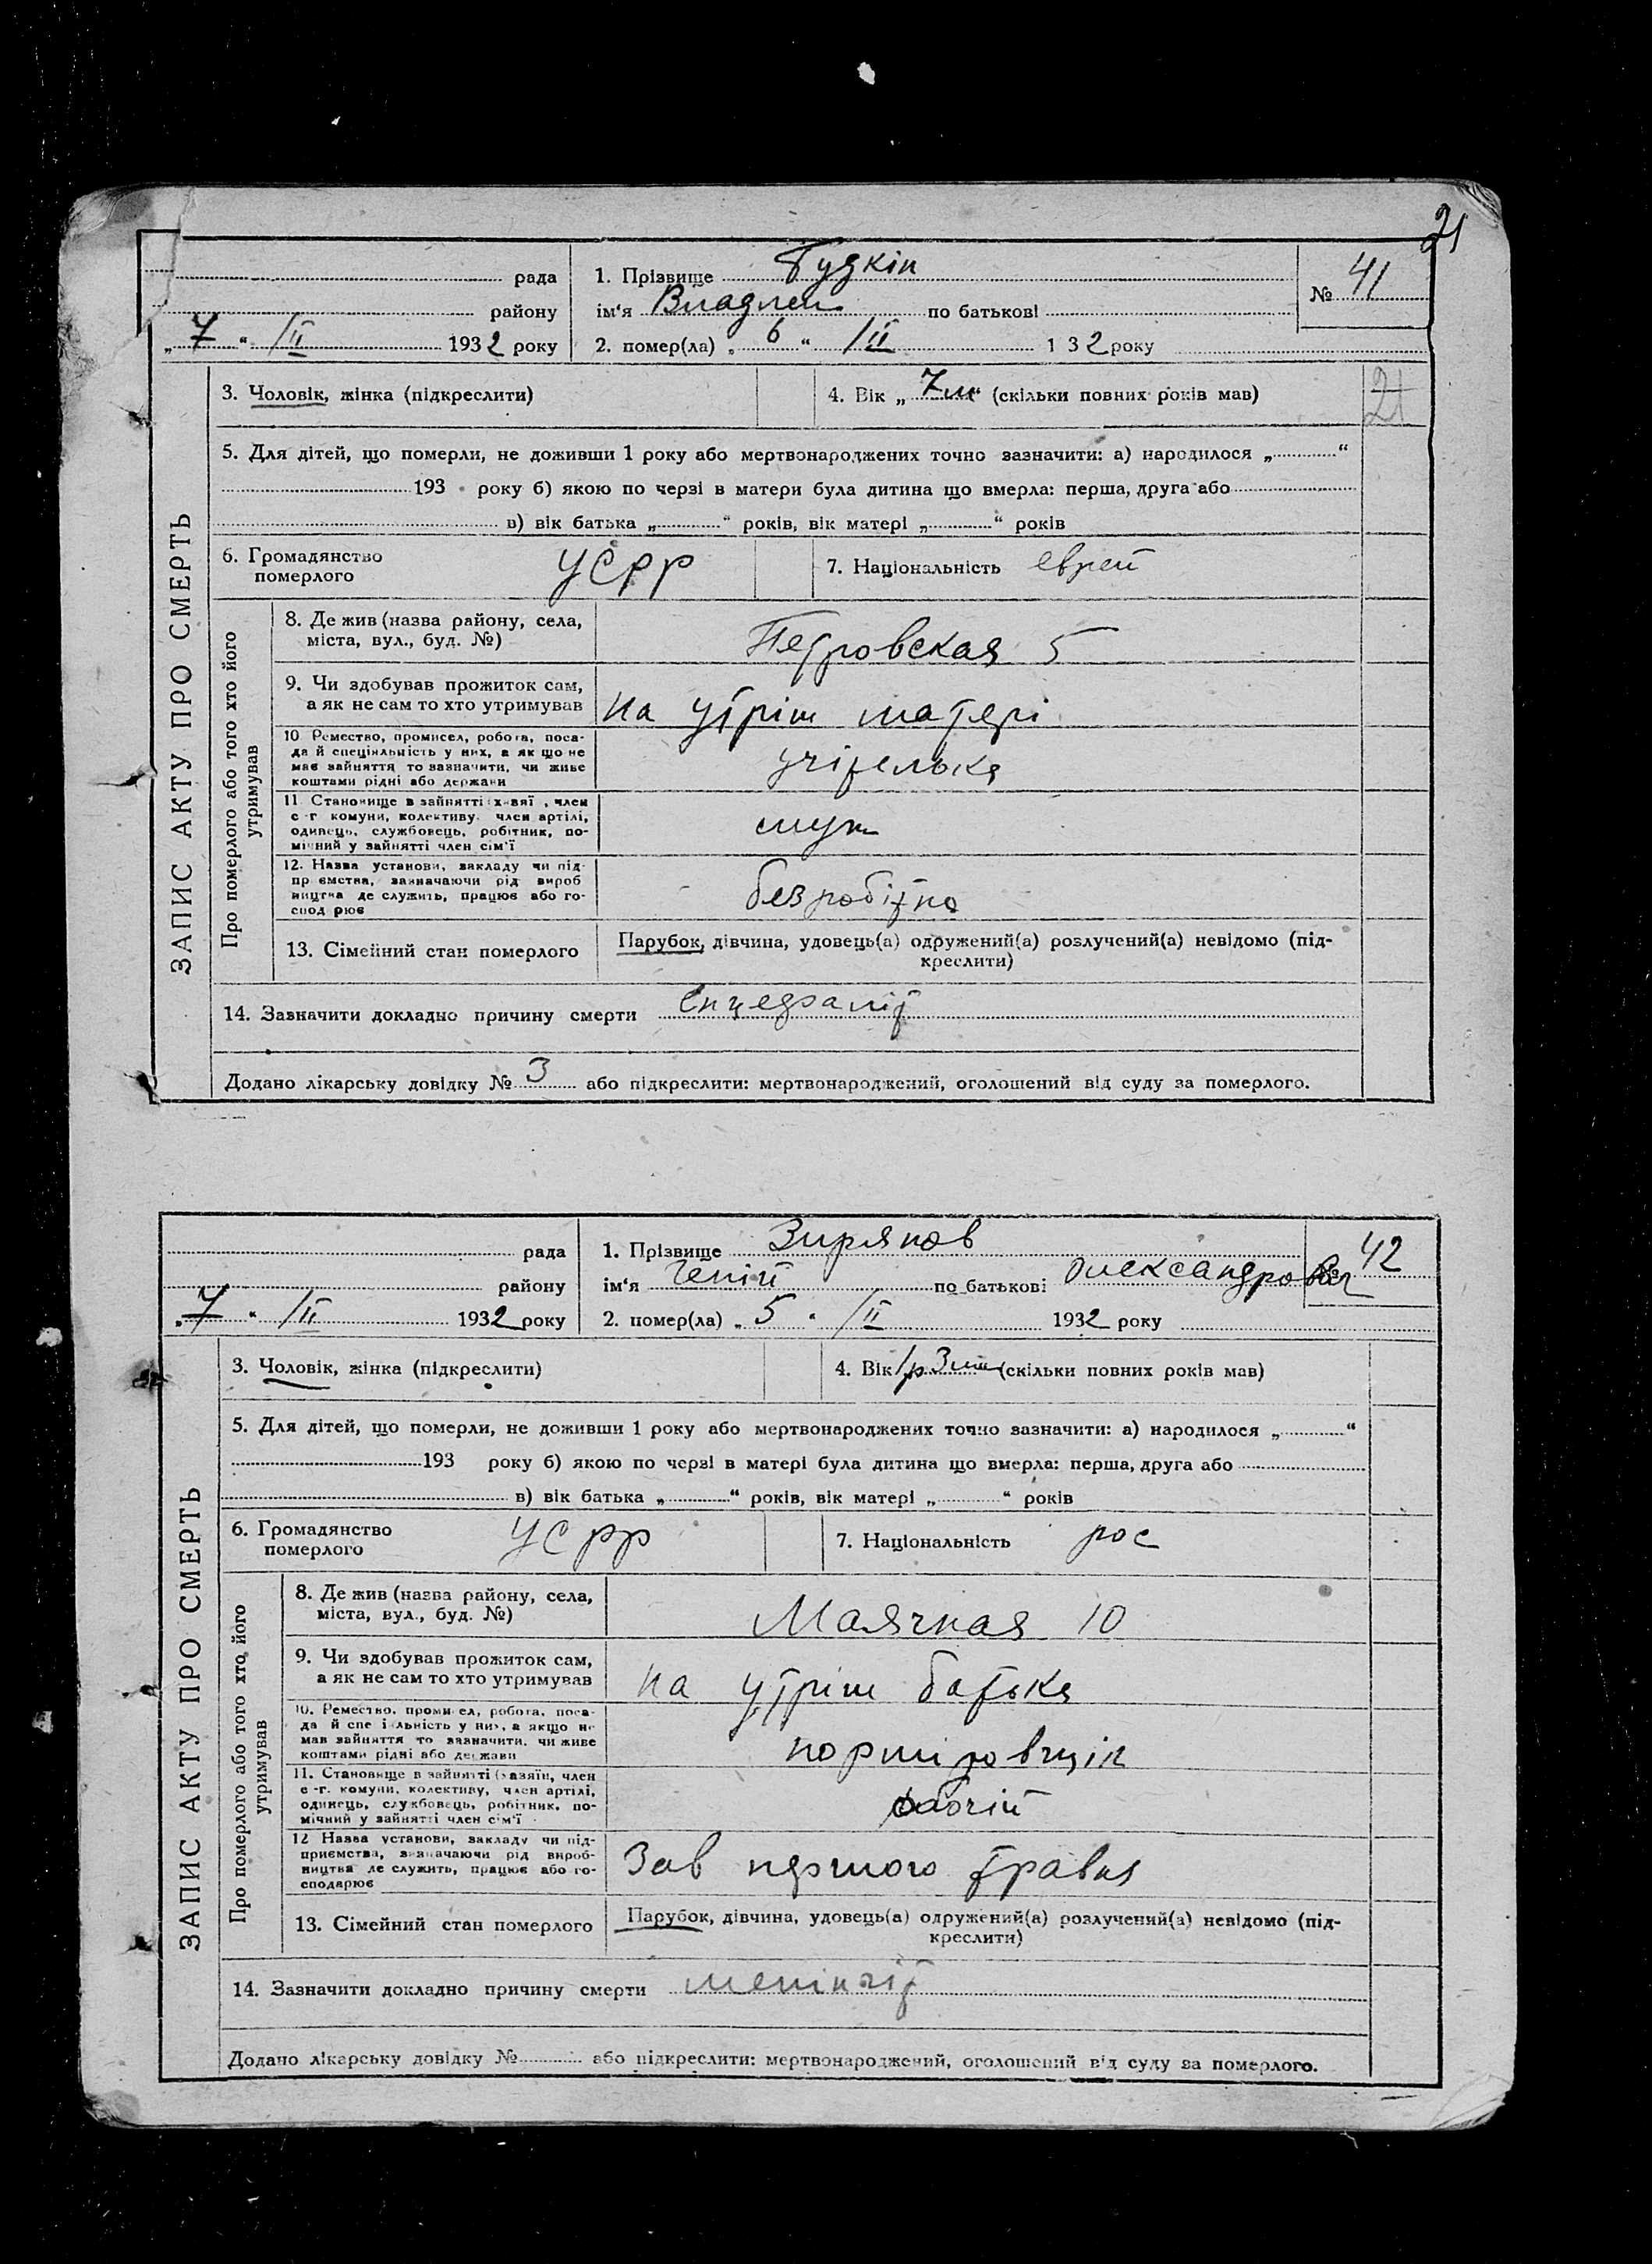 21
рада
району
„ 7 “ /II 1932 року
1. Прізвище Гудкін
ім‘я Владлен по батькові
2. помер(ла) „ 6 “ /II 1 32 року
№ 41
3. Чоловік, жінка (підкреслити)
4. Вік „ 7 м “ (скільки повних років мав)
21
5. Для дітей, що померли, не доживши 1 року або мертвонароджених точно зазначити: а) народилося „ “
193 року б) якою по черзі в матери була дитина що вмерла: перша, друга або
в) вік батька „ “ років, вік матері „ “ років
6. Громадянство
померлого
УСРР
7. Національність еврей
ЗАПИС АКТУ ПРО СМЕРТЬ
Про померлого або того хто його
утримував
8. Де жив (назва району, села,
міста, вул., буд. №)
Петровская 5
9. Чи здобував прожиток сам,
а як не сам то хто утримував
на утрім матері
10 Ремество, промисел, робота, поса-
да й спеціяльність у них, а як що не
мав зайняття то зазначити, чи живе
коштами рідні або держави
учітелька
11 Становище в зайнятті х зяї , член
с -г комуни, колективу, член артілі,
одинець, службовець, робітник, по-
мічний у зайнятті член сім‘ї
служ
12. Назва установи, закладу чи під-
пр ємства, зазначаючи рід вироб
ництва де служить, працює або го-
спод рює
безробітна
13. Сімейний стан померлого
Парубок, дівчина, удовець(а) одружений(а) розлучений(а) невідомо (під-
креслити)
14. Зазначити докладно причину смерти енцефаліт
Додано лікарську довідку № 3 або підкреслити: мертвонароджений, оголошений від суду за померлого.
рада
району
„ 7 “ /II 1932 року
1. Прізвище Зирянов
ім‘я Геній по батькові Олександрович
2. помер(ла) „ 5 “ /II 1932 року
№ 42
3. Чоловік, жінка (підкреслити)
4. Вік 1р 3 м (скільки повних років мав)
5. Для дітей, що померли, не доживши 1 року або мертвонароджених точно зазначити: а) народилося „ “
193 року б) якою по черзі в матері була дитина що вмерла: перша, друга або
в) вік батька „ “ років, вік матері „ “ років
6. Громадянство
померлого
УСРР
7. Національність рос
ЗАПИС АКТУ ПРО СМЕРТЬ
Про померлого або того хто його
утримував
8. Де жив (назва району, села,
міста, вул., буд. №)
Маячная 10
9. Чи здобував прожиток сам,
а як не сам то хто утримував
на утрім батька
10. Ремество, проми ел, робота, поса-
да й спе і льність у них, а якщо не
мав зайняття то зазначити, чи живе
коштами рідні або держави
норміровщік
11. Становище в зайнятті (хазяїн, член
с -г. комуни, колективу, член артілі,
одинець, службовець, робітник, по-
мічний у зайнятті член сім‘ї
рабочій
12 Назва установи, закладу чи під-
приємства, зазначаючи рід вироб-
ництва де служить, працює або го-
сподарює
Зав першого травня
13. Сімейний стан померлого
Парубок, дівчина, удовець(а) одружений(а) розлучений(а) невідомо (під-
креслити)
14. Зазначити докладно причину смерти менінгіт
Додано лікарську довідку № або підкреслити: мертвонароджений, оголошений від суду за померлого.